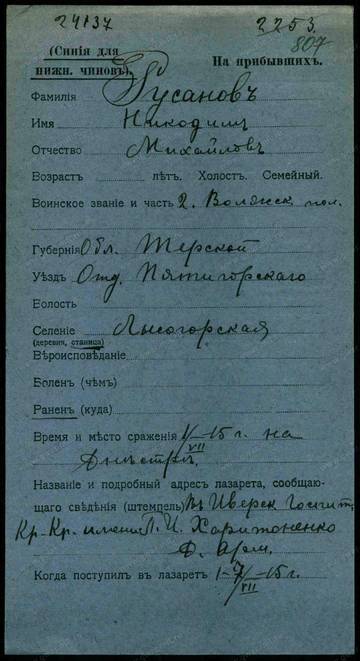 24137
2253.
807
(Синія для
нижн. чиновъ).
На прибывшихъ.
Фамилія Русановъ
Имя Никодимъ
Отчество Михайловъ
Возрастъ лѣтъ. Холост. Семейный.
Воинское званіе и часть 2. Волжск пол.
Губернія Обл. Терской
Уѣздъ Отд. Пятигорскаго
Волость
Селеніе Лысогорская
(деревня, станица)
Вѣроисповѣданіе
Боленъ (чѣмъ)
Раненъ (куда)
Время и мѣсто сраженія 1/VII–15 г. на
Днѣстрѣ.
Названіе и подробный адресъ лазарета, сообщаю-
щаго свѣдѣнія (штемпель) Иверск Госпит.
Кр. Кр. имени П. И. Харитоненко
Д. Арм.
Когда поступилъ въ лазаретъ 1–7/VII–15 г.